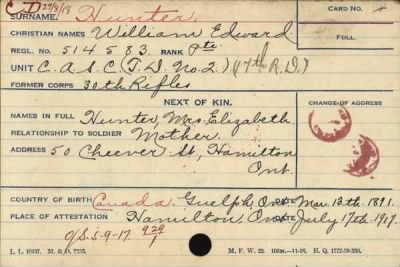 C.D 27/8/18
SURNAME. Hunter, CARD No.
CHRISTIAN NAMES William Edward FOLL.
REGL. NO. 514583 RANK Pte.
UNIT C.A.S.C (T.D. No. 2) (17th R.D.)
FORMER CORPS 30th Rifles
NEXT OF KIN. CHANGE OF ADDRESS
NAMES IN FULL Hunter, Mrs. Elizabeth
RELATIONSHIP TO SOLDIER Mother
ADDRESS 50 Cheever St, Hamilton
Ont.
COUNTRY OF BIRTH Canada, Guelph, Ont. DATE Mar. 13th. 1891.
PLACE OF ATTESTATION Hamilton, Ont. DATE July 17th. 1917.
O/S.5-9-17. 929/1
L. L. 10437. M. & D. 7753. M. F. W. 22. H. Q. 1772-39-339.